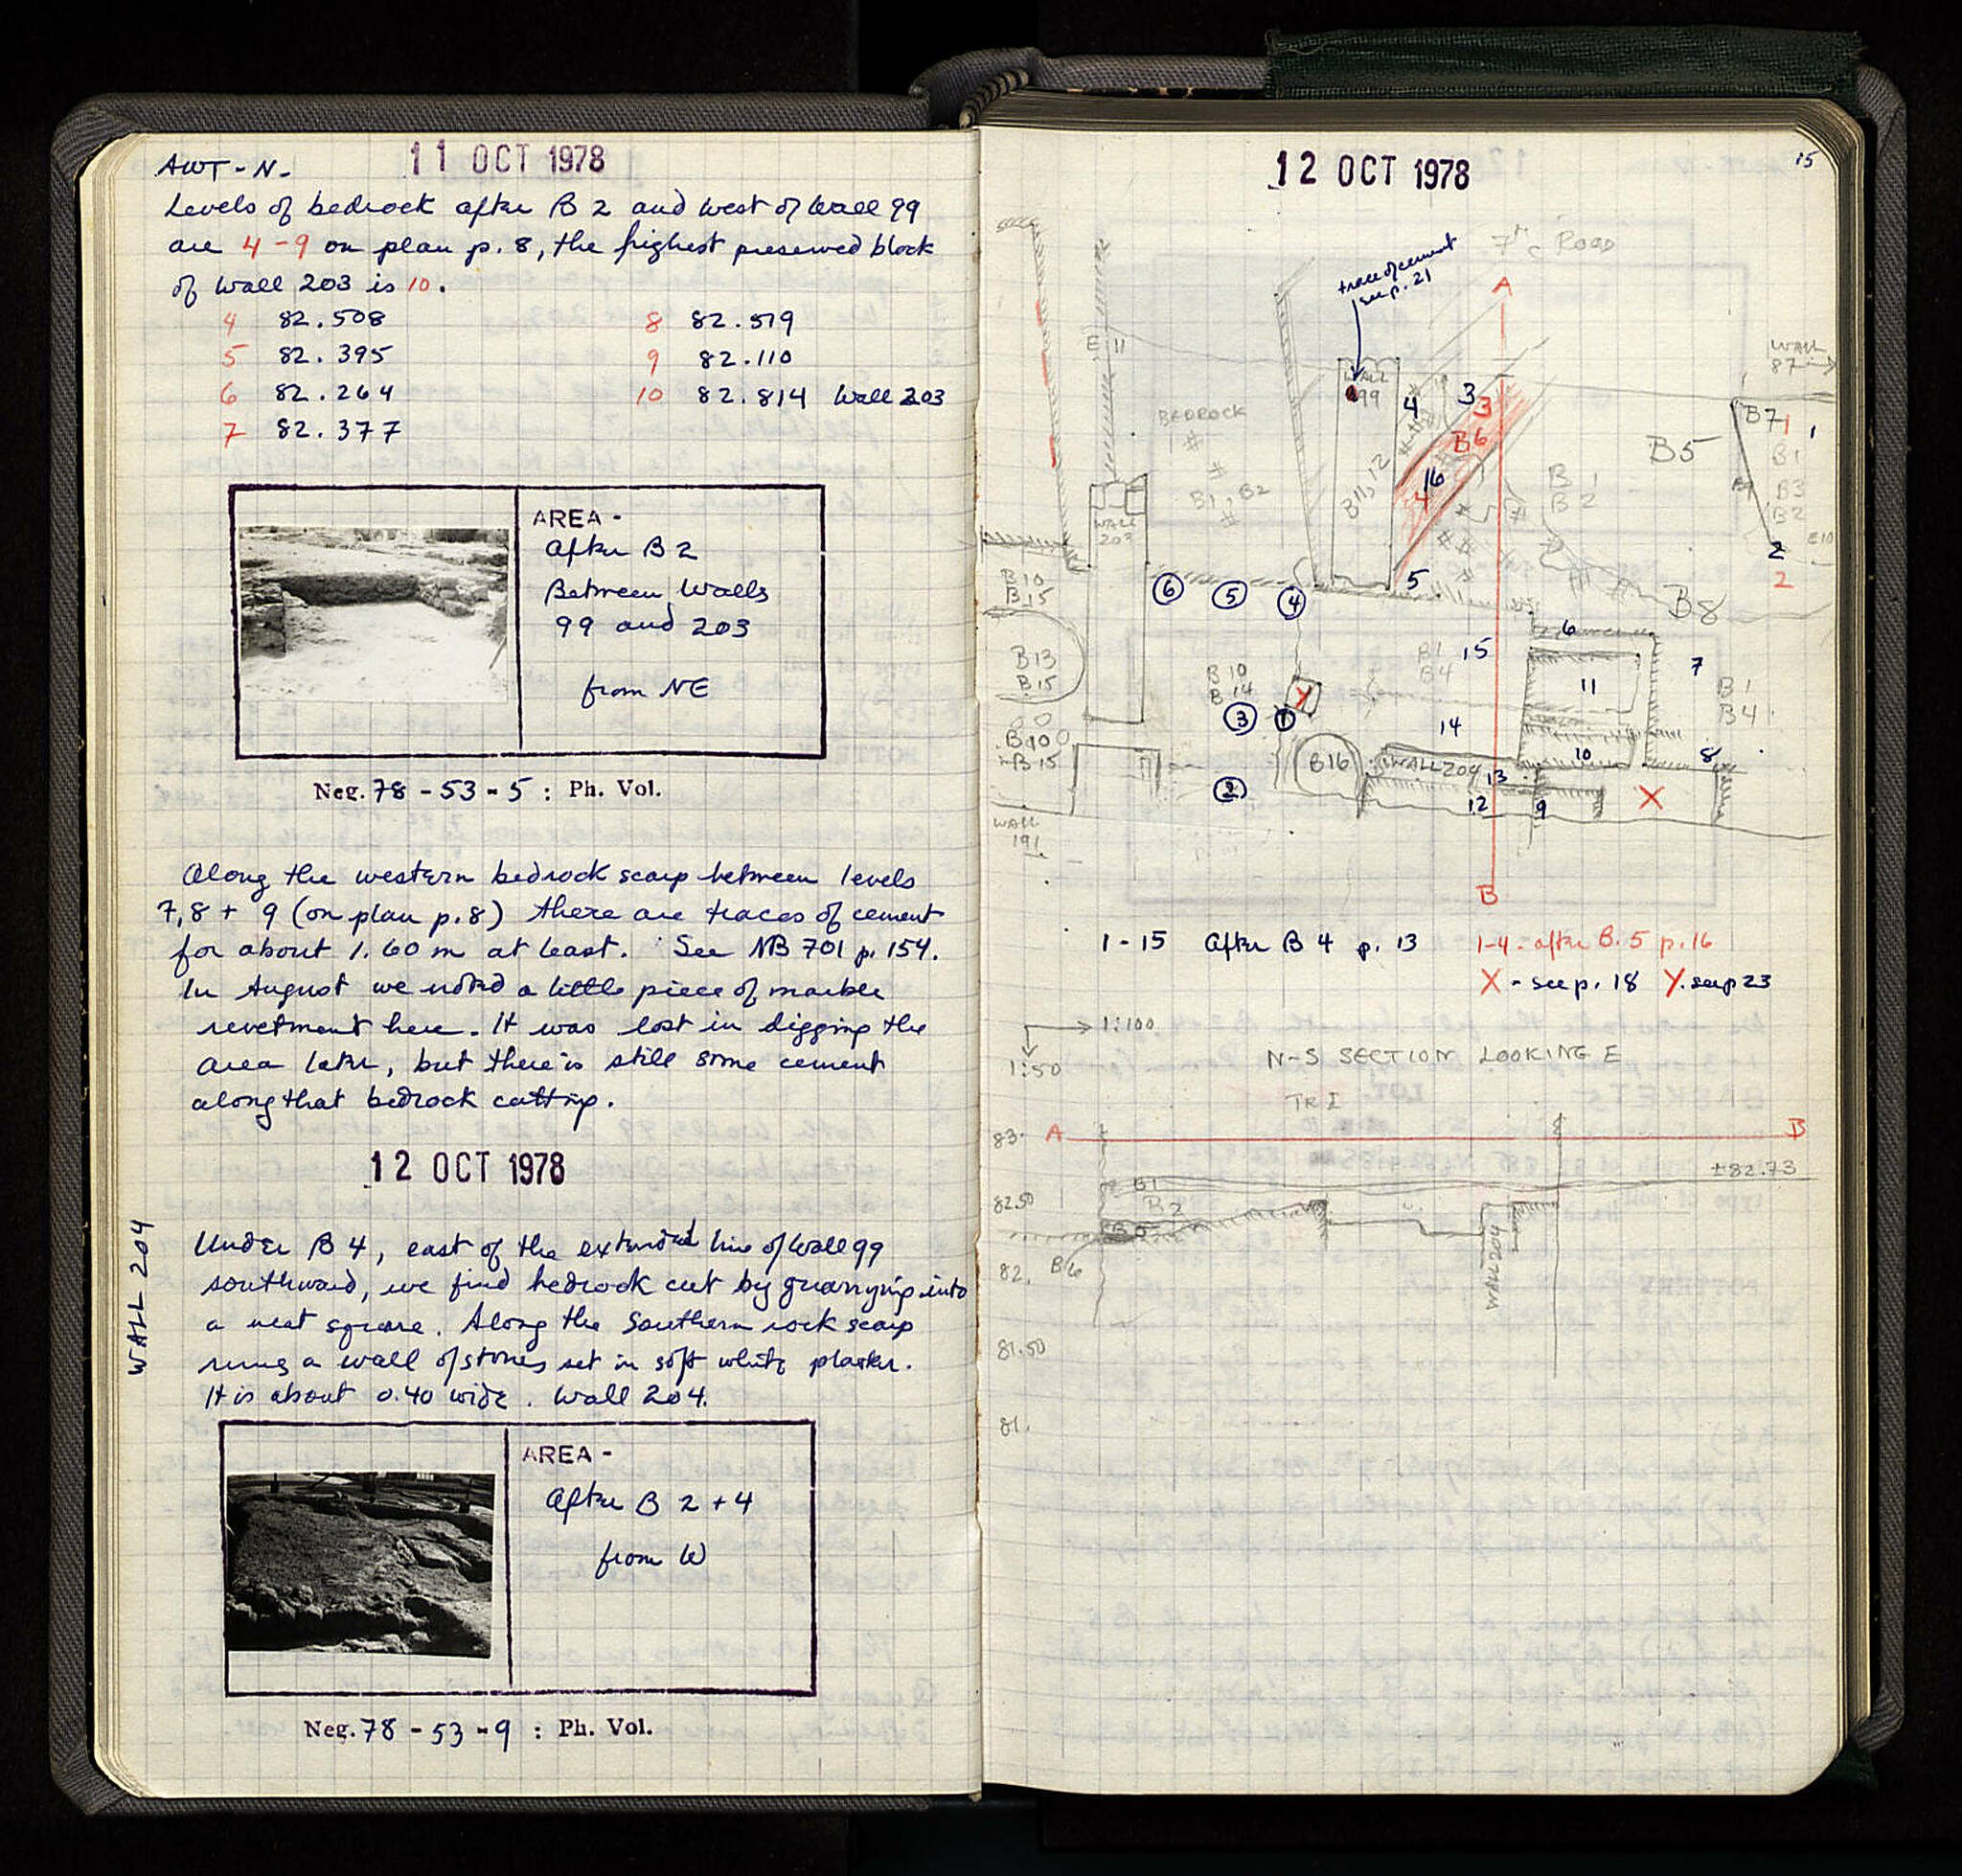 AWT - N -
11 OCT 1978
Levels of bedrock after B 2 and west of Wall 99
are 4 - 9 on plan p. 8, the highest preserved block
of Wall 203 is 10.
4 82.508
5 82.395
6 82.264
7 82.377
8 82.519
9 82.110
10 82.814 Wall 203
AREA -
After B 2
Between Walls
99 and 203
from NE
Neg. 78 - 53 - 5 : Ph. Vol.
Along the western bedrock scarp between levels
7, 8 + 9 (on plan p. 8) there are traces of cement
for about 1.60 m at least. See NB 701 p. 154.
In August we noted a little piece of marble
revetment here. It was lost in digging the
area later, but there is still some cement
along that bedrock cutting.
12 OCT 1978
WALL 204
Under B 4, east of the extended line of Wall 99
southward, we find bedrock cut by quarrying into
a neat square. Along the southern rock scarp
runs a wall of stones set in soft white plaster.
It is about 0.40 wide. Wall 204.
AREA -
After B 2 + 4
from W
Neg. 78 - 53 - 9 : Ph. Vol.
15
12 OCT 1978
7th C ROAD
trace of cement
see p. 21
A
E 11
WALL
87
WALL
99
BEDROCK
B1, B2
B11, 12
4
3
3
B6
16
4
B5
B7
1
1
B1
B3
B2
2
2
E10
B 1
B 2
WALL
203
B10
B15
6
5
4
5
B8
B13
B15
B10
B14
Y
3
1
B1
B4
15
6
7
11
B1
B4
14
B10
B15
B16
WALL 204
13
10
8
2
12
9
X
WALL
191
B
1 - 15 After B 4 p. 13
1-4 - after B. 5 p. 16
X - see p. 18 Y. see p 23
1:100
1:50
N-S SECTION LOOKING E
TR I
83.
A
B
±82.73
B1
82.50
B2
B5
82.
B6
WALL 204
81.50
81.